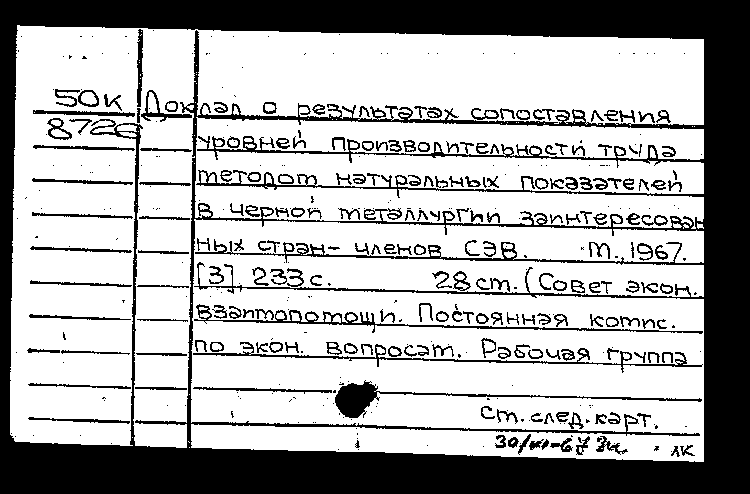 50к Доклад о результатах сопоставления
8726 уровней производительности труда
методом натуральных показателей
в черной металлургии заинтересован
ных стран- членов СЭВ. М., 1967.
[3], 233 с. 28 см. (Совет экон.
взаимопомощи. Постоянная комис.
по экон. вопросам. Рабочая группа
См. след. карт.
лк